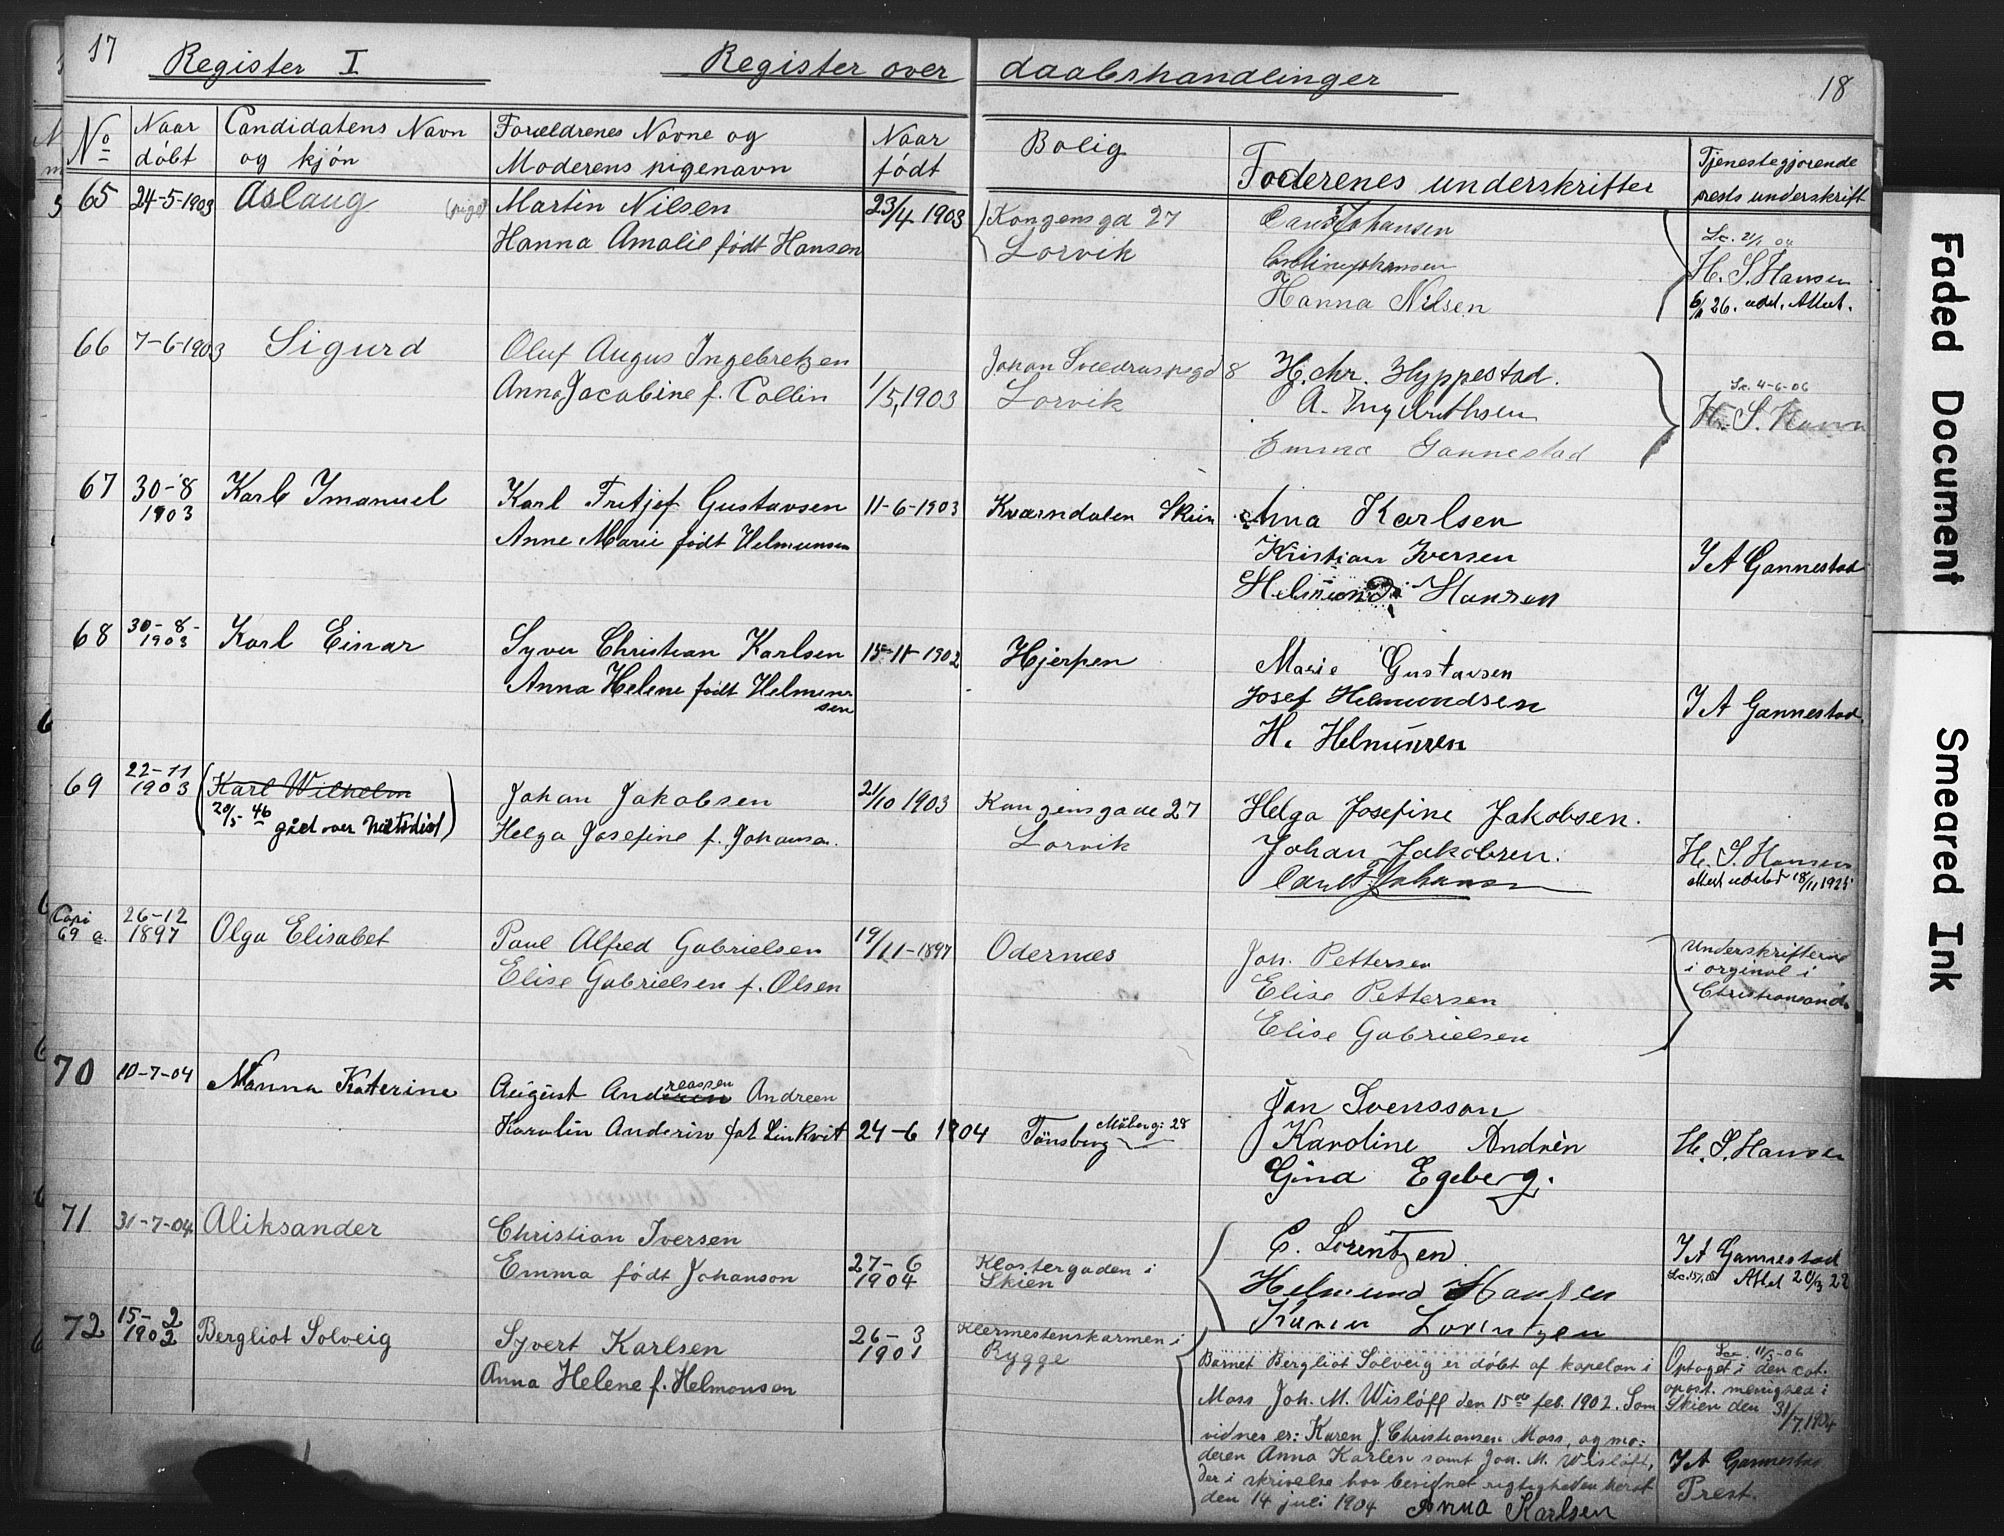 17
Register I
Register over daabshandlinger
18
No
Naar døbt
Candidatens Navn og kjön
Forældrenes Navne og Moderens pigenavn
Naar født
Bolig
Fadderenes underskrifter
Tjenestegjørende prests underskrift
65
24-5-1903
Aslaug (pige)
Martin Nilsen
Hanna Amalie født Hansen
23/4 1903
Kongensgd 27
Larvik
Johansen
Hanna Nilsen
H. S. Hansen
6/1 26. udst. Attest.
66
7-6-1903
Sigurd
Oluf Augus Ingebretzen
Anna Jacobine f. Collin
1/5, 1903
Larvik
H. Chr. Hyppestad.
A.
Emma Gannestad
Lc. 4-6-06
H. S. Hansen
67
30-8
1903
Karl Imanuel
Karl Fritjof Gustavsen
Anne Marie født Helmunsen
11-6-1903
Kværndalen Skien
Anna Karlsen
Kristian Iversen
Helmund Hansen
I A Gannestad
68
30-8-
1903
Karl Einar
Syver Christian Karlsen
Anna Helene født Helmun-
sen
15-11-1902
Hjerpen
Marie Gustavsen
Josef Helmundsen
H. Helmunsen
I A Gannestad
69
22-11
1903
(Karl Wilhelm
20/5-46 gået over
Johan Jakobsen
Helga Josefine f. Johansen.
21/10 1903
Kongensgade 27
Larvik
Helga Josefine Jakobsen.
Johan Jakobsen.
Johansen
H. S. Hansen
Attest udstedt 18/11 1925
Copi
69 a.
26-12
1897
Olga Elisabet
Paul Alfred Gabrielsen
Elise Gabrielsen f. Olsen
19/11-1897
Odernæs
Joh. Pettersen
Elise Pettersen
Elise Gabrielsen
Underskrifterne
i orginal i
Christiansand.
70
10-7-04
Nanna Katerine
reassen
August Anderen Andreen
Karolin Anderin føt Linkvit
24-6 1904
Tønsberg
Jon Svensson
Karoline Andrèn
Gina Egeberg.
H. S. Hansen
71
31-7-04
Aliksander
Christian Iversen
Emma født Johanson
27-6
1904
Klostergaden i
Skien
C. Lorentzen
Helmund Hansen
Karen Lorentzen
I A Gannestad
Attest 20/3 22
72
15-2
1902
Bergliot Solveig
Syvert Karlsen
Anna Helene f. Helmonsen
26-3
1901
Klermestenskarmen i
Rygge
Barnet Bergliot Solveig er døbt af kapelan i
Moss Joh. M. Wisløff den 15de feb. 1902. Som
vidner er: Karen J. Christiansen Moss, og mo-
deren Anna Karlsen samt Joh. M. Wisløff,
der i skrivelse har bevidnet rigtigheden heraf
den 14 juli 1904 Anna Karlsen
Lc. 11/3-06
Optaget i den cat.
apost. menighed i
Skien den 31/7 1904
I A Gannestad
Prest.
Faded Document
Smeared Ink